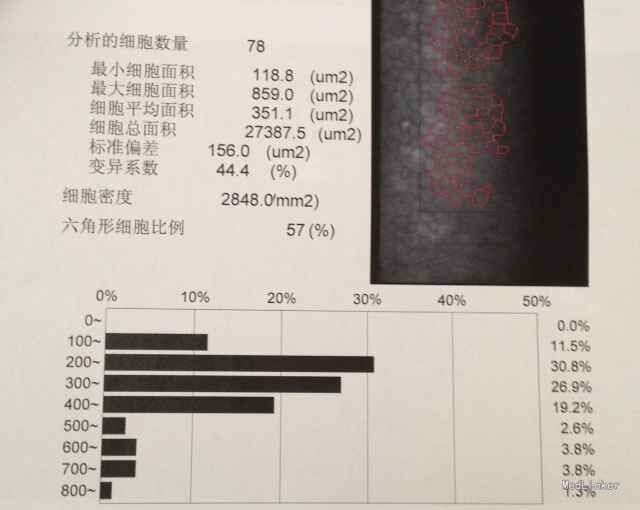 分析的细胞数量 78
最小细胞面积 118.8 (um2)
最大细胞面积 859.0 (um2)
细胞平均面积 351.1 (um2)
细胞总面积 27387.5 (um2)
标准偏差 156.0 (um2)
变异系数 44.4 (%)
细胞密度 2848.0/mm2)
六角形细胞比例 57 (%)
0% 10% 20% 30% 40% 50%
0~ 0.0%
100~ 11.5%
200~ 30.8%
300~ 26.9%
400~ 19.2%
500~ 2.6%
600~ 3.8%
700~ 3.8%
800~ 1.3%
MedLinker